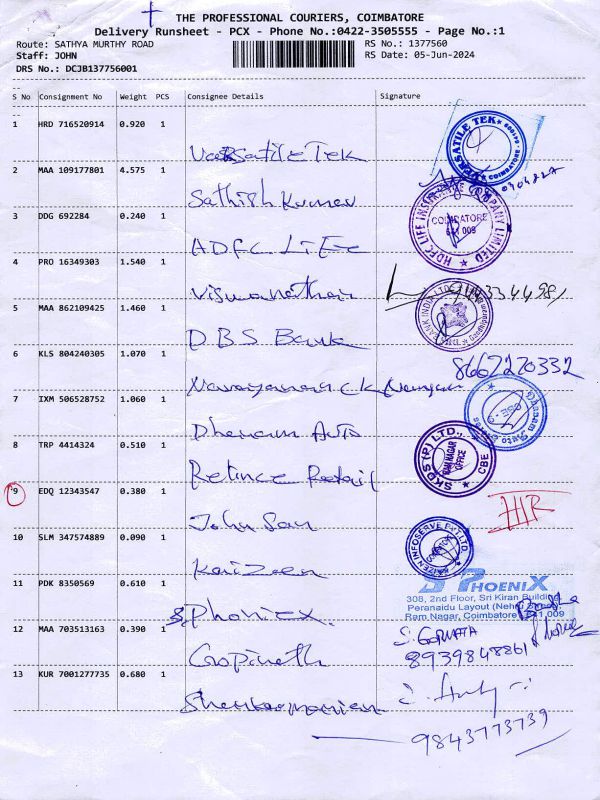 THE PROFESSIONAL COURIERS, COIMBATORE
Delivery Runsheet - PCX - Phone No.:0422-3505555 - Page No.:1
Route: SATHYA MURTHY ROAD RS No.: 1377560
Staff: JOHN RS Date: 05-Jun-2024
DRS No.: DCJB137756001
S No Consignment No Weight PCS Consignee Details Signature
1 HRD 716520914 0.920 1 VersatileTek
VERSATILE TEK COIMBATORE
2 MAA 109177801 4.575 1 Sathish Kumar
3 DDG 692284 0.240 1 ADFC LIFE
HDFC LIFE INSURANCE COMPANY LIMITED
COIMBATORE
641 009
4 PRO 16349303 1.540 1 Viswanathan
5 MAA 862109425 1.460 1 DBS Bank
BANK INDIA LTD
6 KLS 804240305 1.070 1 Narayanan.CK
8667270332
7 IXM 506528752 1.060 1 Dhanam Auto
8 TRP 4414324 0.510 1 Relince Retail
SKDS (P) LTD., CBE
RAM NAGAR
OFFICE
9 EDQ 12343547 0.380 1 John San
10 SLM 347574889 0.090 1 Kaizen
KAIZEN INFOSERVE PVT LTD.
11 PDK 8350569 0.610 1 S. Phoniex.
S PHOENIX
308, 2nd Floor, Sri Kiran Building
Peranaidu Layout (Nehru Street)
Ram Nagar, Coimbatore 641 009
12 MAA 703513163 0.390 1 Gopinath
8939848861
13 KUR 7001277735 0.680 1 Shankarmanian
9843773739